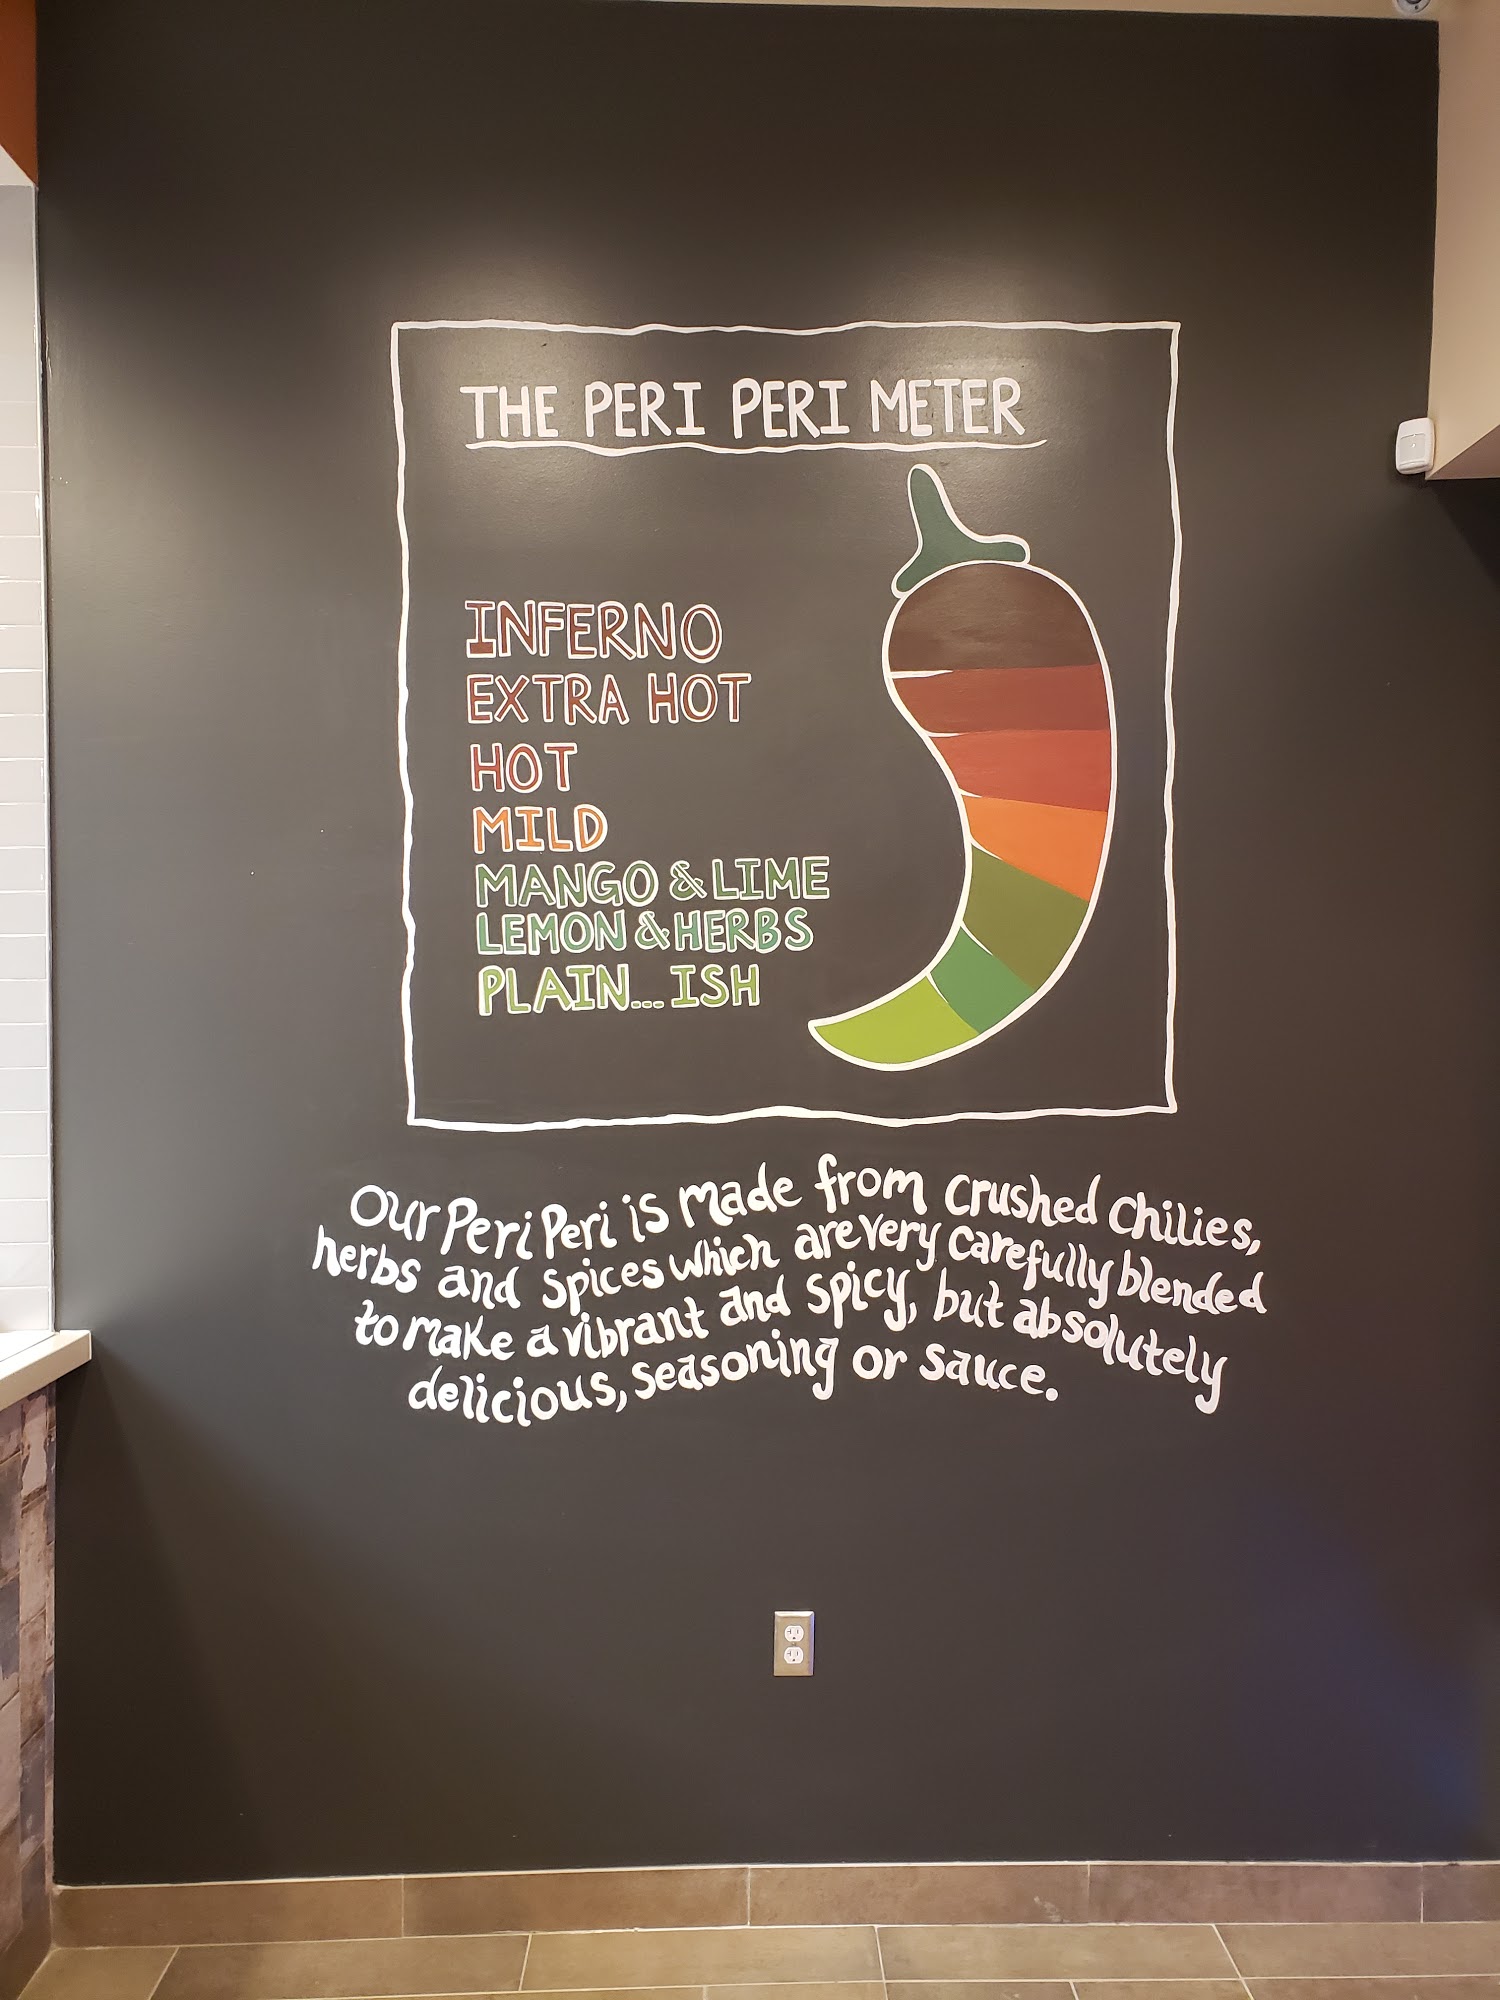 THE PERI PERI METER
INFERNO
EXTRA HOT
HOT
MILD
MANGO & LIME
LEMON & HERBS
PLAIN... ISH
Our Peri Peri is made from crushed chilies,
herbs and spices which are very carefully blended
to make a vibrant and spicy, but absolutely
delicious, seasoning or sauce.